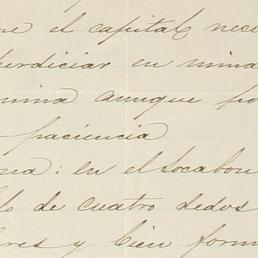 el capital nece
perdiciar en mina
mina aunque po
paciencia
na: en el socabon
de cuatro dedos
res y bien form